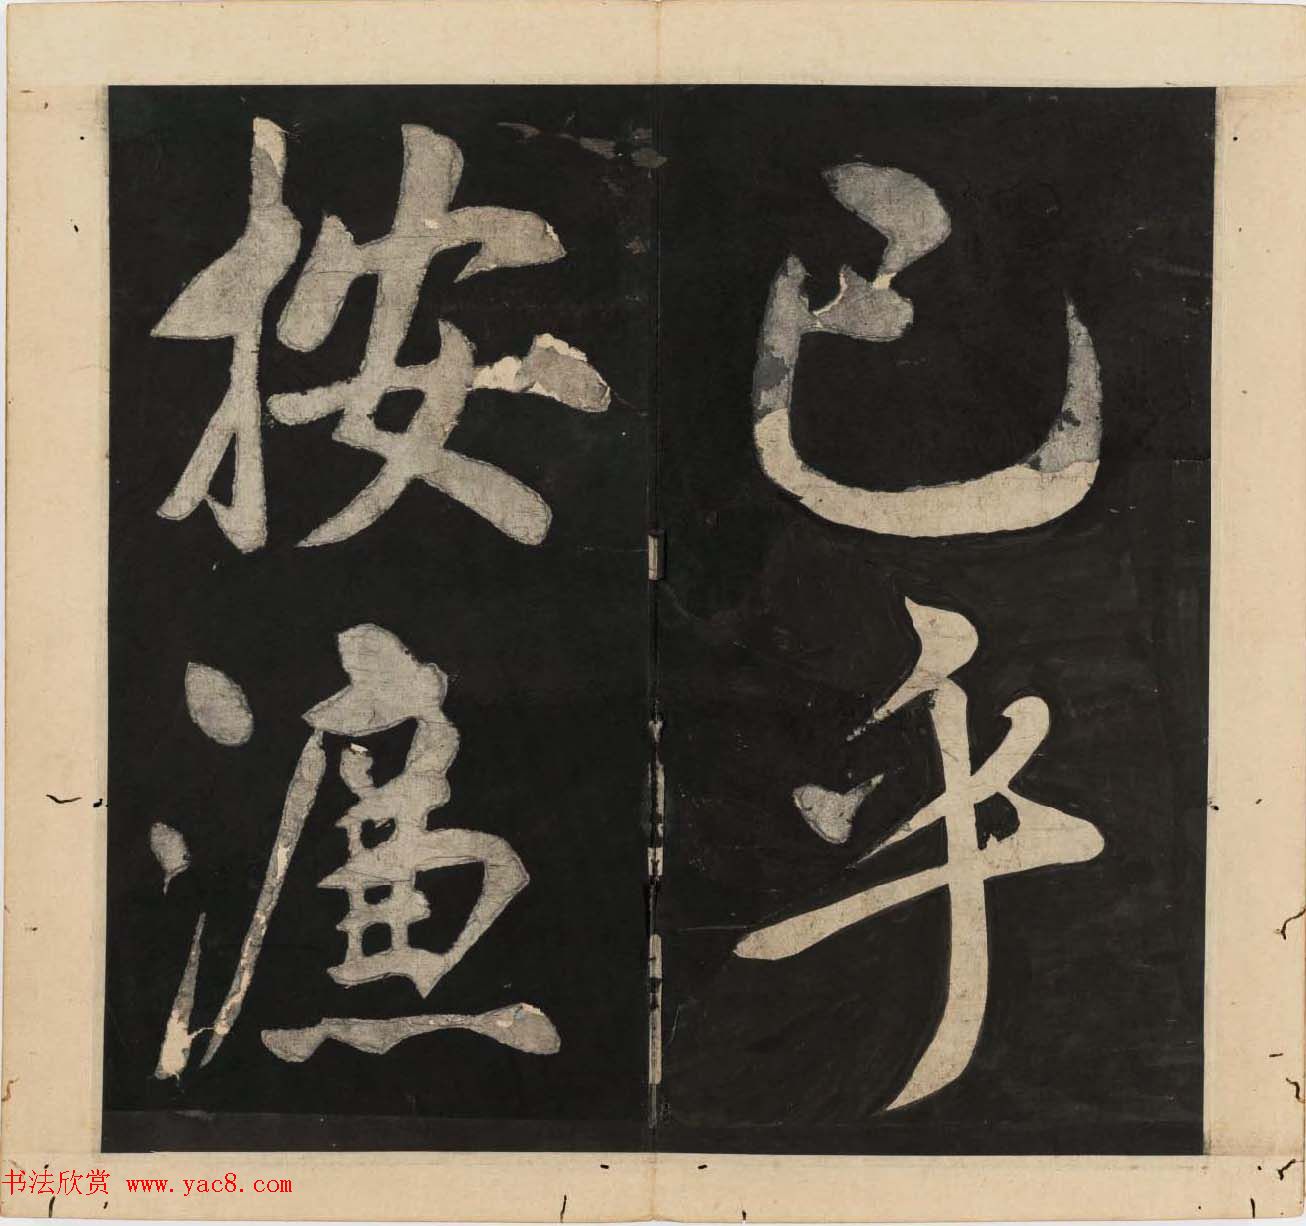 已乎
按
书法欣赏 www.yac8.com